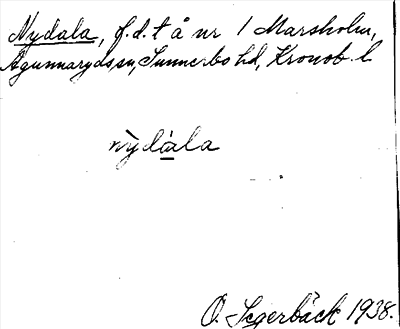 Nydala, f.d. t å nr 1 Marsholm,
Agunnaryds sn, Sunnerbo hd, Kronob. l.
nỳdàla
O. Segerbäck 1938.